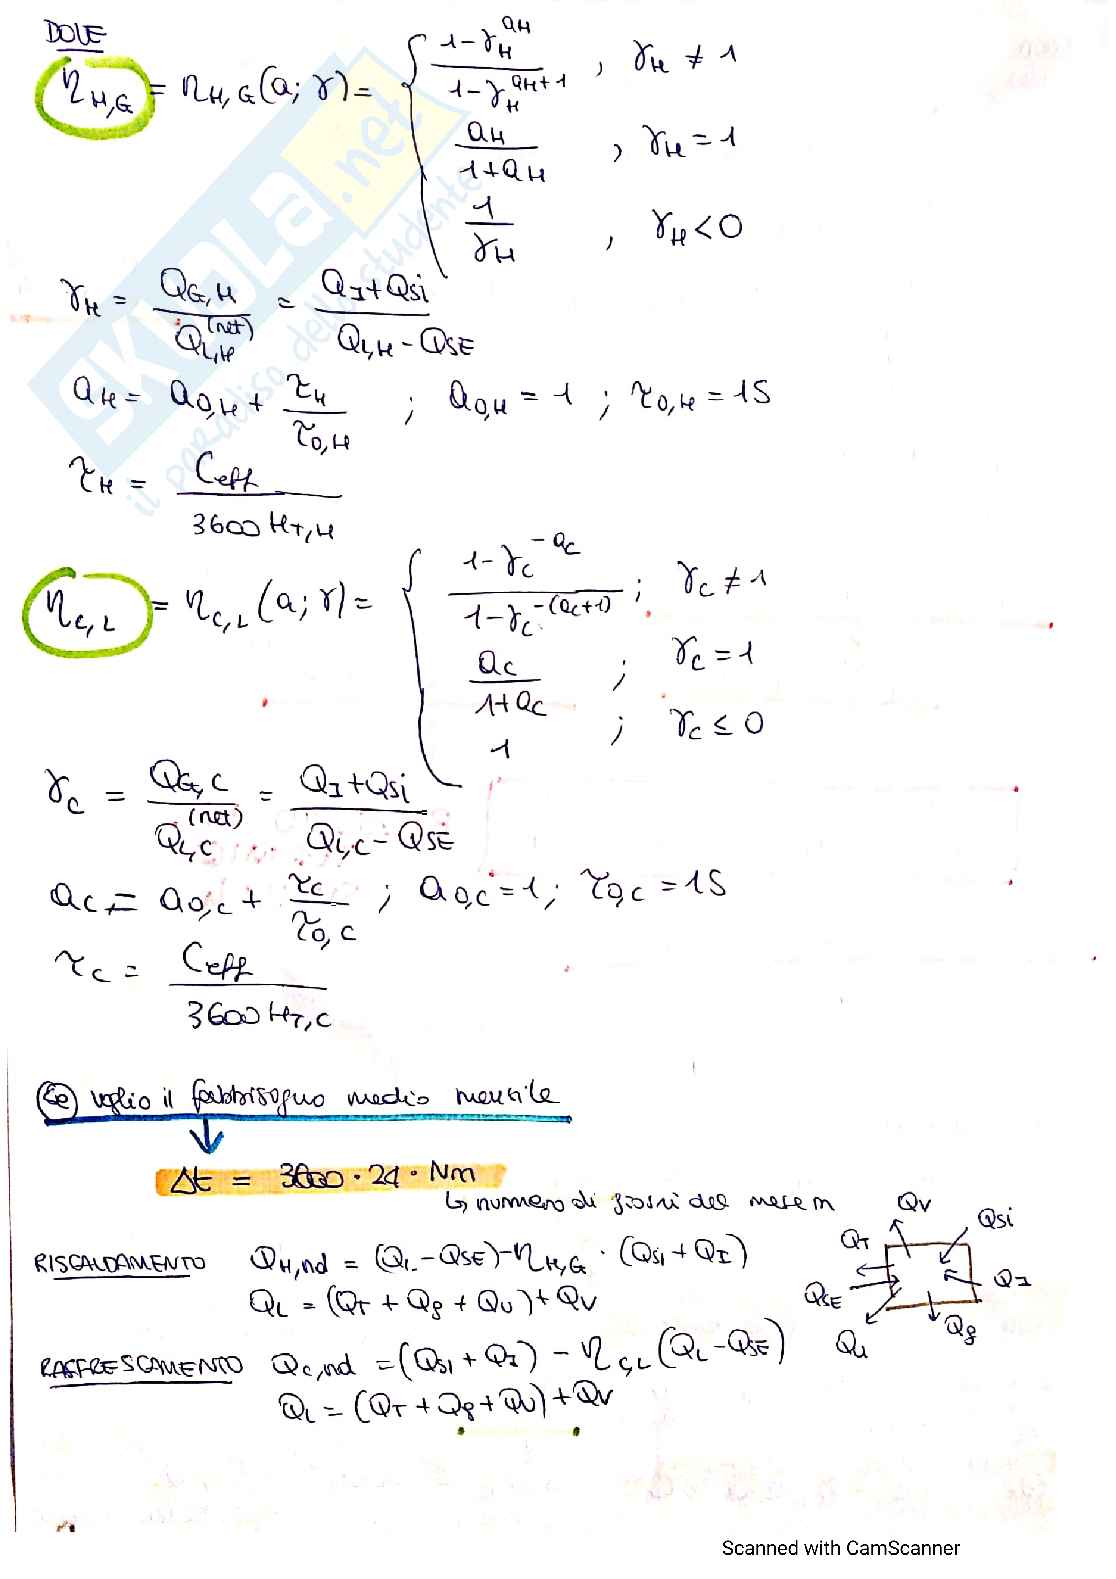 DOVE
η_H,G = η_H,G(a; γ) = { (1-γ_H^a_H)/(1-γ_H^(a_H+1)) , γ_H ≠ 1
a_H/(1+a_H) , γ_H = 1
1/γ_H , γ_H < 0
γ_H = Q_G,H/Q_L,H^(net) = (Q_I+Q_si)/(Q_L,H - Q_SE)
a_H = a_0,H + τ_H/τ_0,H ; a_0,H = 1 ; τ_0,H = 15
τ_H = C_eff/(3600 H_T,H)
η_C,L = η_C,L(a; γ) = { (1-γ_C^-a_C)/(1-γ_C^-(a_C+1)) ; γ_C ≠ 1
a_C/(1+a_C) ; γ_C = 1
1 ; γ_C ≤ 0
γ_C = Q_G,C/Q_L,C^(net) = (Q_I+Q_si)/(Q_L,C - Q_SE)
a_C = a_0,C + τ_C/τ_0,C ; a_0,C = 1 ; τ_0,C = 15
τ_C = C_eff/(3600 H_T,C)
Se voglio il fabbisogno medio mensile
Δt = 3600 · 24 · Nm
↳ numero di giorni del mese m
RISCALDAMENTO Q_H,nd = (Q_L - Q_SE) - η_H,G · (Q_SI + Q_I)
Q_L = (Q_T + Q_g + Q_U) + Q_V
RAFFRESCAMENTO Q_C,nd = (Q_SI + Q_I) - η_C,L (Q_L - Q_SE)
Q_L = (Q_T + Q_g + Q_U) + Q_V
Q_V
Q_Si
Q_T
Q_SE
Q_I
Q_U
Q_g
SKUOLA.net
il paradiso dello studente
Scanned with CamScanner